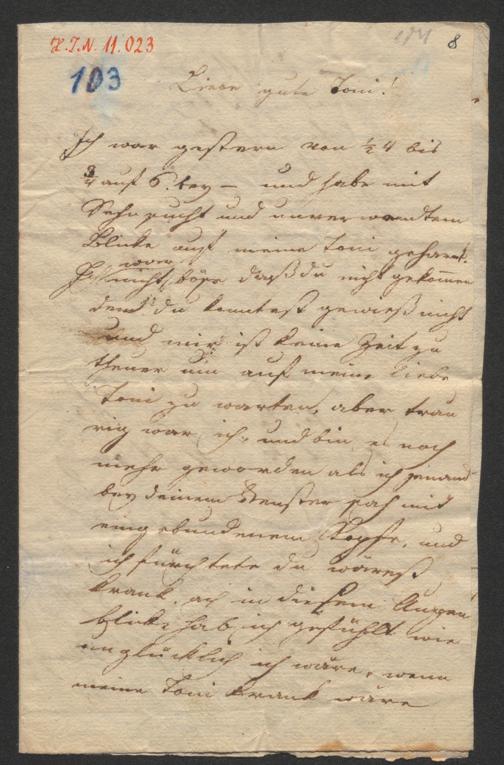 H.I.N. 11.023
171
8
103
Liebe gute Toni!
Ich war gestern von ½ 4 bis
¾ auf 6. bey – und habe mit
Sehnsucht und unverwandtem
Blicke auf meine Toni geharrt.
war
Ich nicht böse daß du nicht gekommen
denn du konntest gewieß nicht
und mir ist keine Zeit zu
theuer um auf meine liebe
Toni zu warten, aber trau
rig war ich, und bin es noch
mehr geworden als ich jemand
bey deinem Fenster sah mit
eingebundenem Kopfe, und
ich fürchtete du wärest
krank. ach in diesem Augen
blicke hab ich gefühlt wie
unglücklich ich wäre, wenn
meine Toni krank wäre